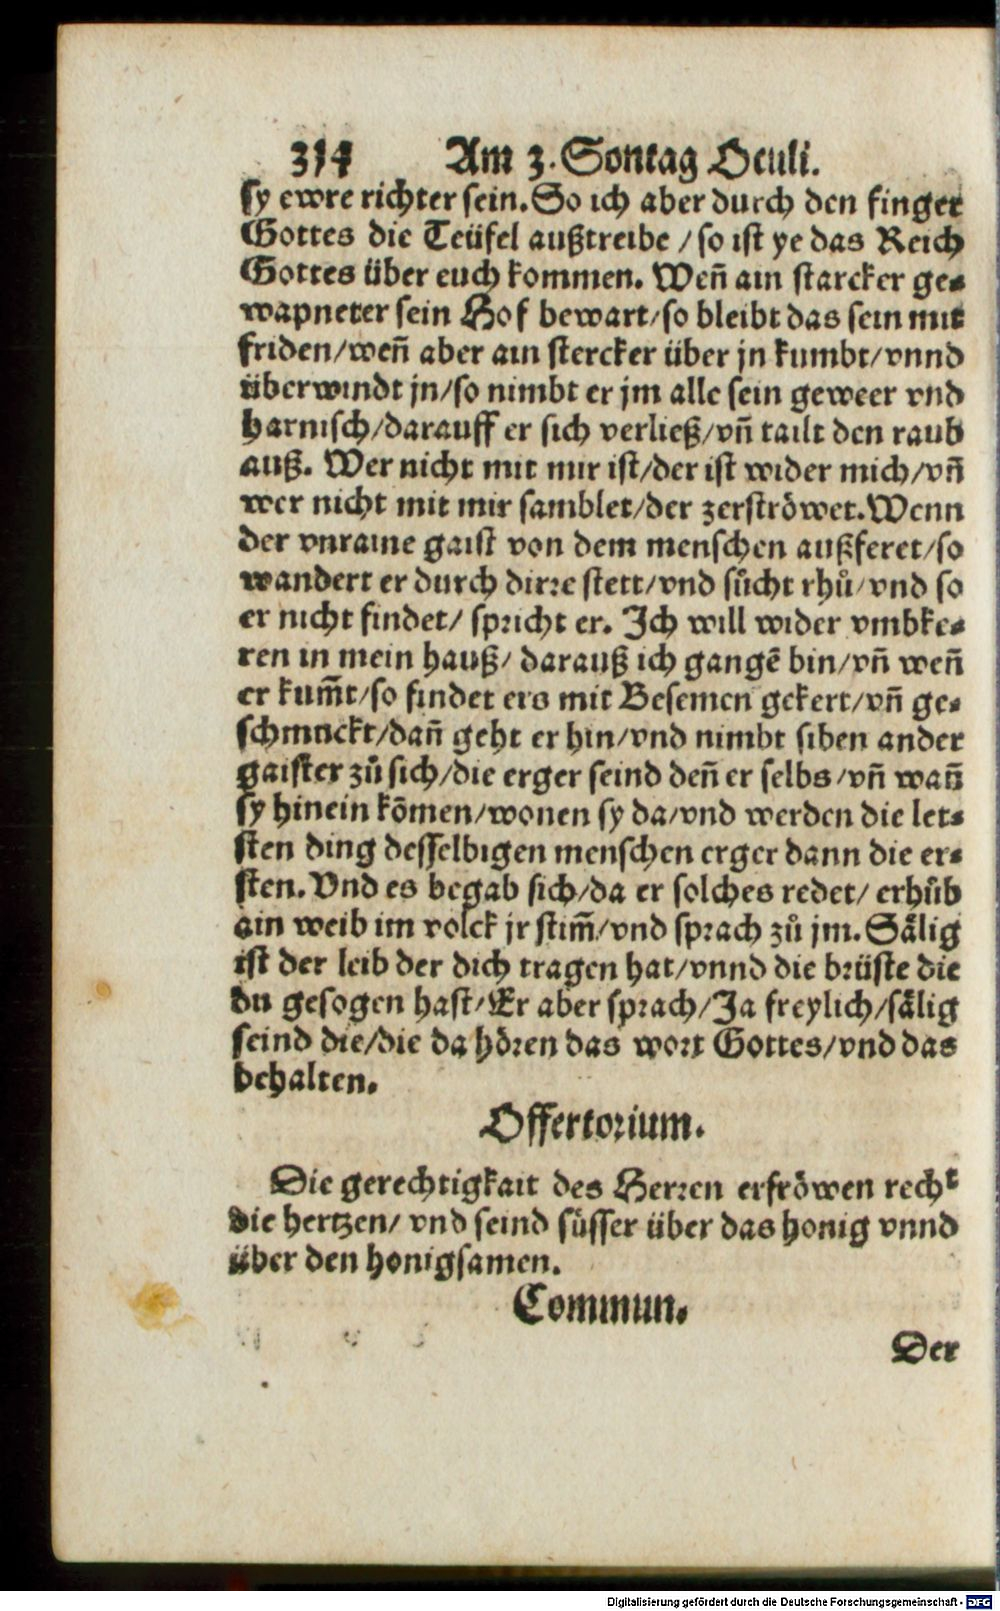 314 Am 3. Sontag Oculi.
sy ewre richter sein. So ich aber durch den finger
Gottes die Teüfel außtreibe / so ist ye das Reich
Gottes über euch kommen. Weñ ain starcker ge-
wapneter sein Hof bewart/so bleibt das sein mit
friden/weñ aber ain stercker über jn kumbt/vnnd
überwindt jn/so nimbt er jm alle sein geweer vnd
harnisch/darauff er sich verließ/vñ tailt den raub
auß. Wer nicht mit mir ist/der ist wider mich/vñ
wer nicht mit mir samblet/der zerströwet. Wenn
der vnraine gaist von dem menschen außferet/so
wandert er durch dirre stett/vnd sůcht rhů/vnd so
er nicht findet/ spricht er. Ich will wider vmbke-
ren in mein hauß/ darauß ich gangẽ bin/vñ weñ
er kum̃t/so findet ers mit Besemen gekert/vñ ge-
schmuckt/dañ geht er hin/vnd nimbt siben ander
gaister zů sich/die erger seind deñ er selbs/vñ wañ
sy hinein kõmen/wonen sy da/vnd werden die let-
sten ding desselbigen menschen erger dann die er-
sten. Vnd es begab sich/da er solches redet/ erhůb
ain weib im volck jr stim̃/vnd sprach zů jm. Sålig
ist der leib der dich tragen hat/vnnd die brüste die
du gesogen hast/Er aber sprach/Ja freylich/sålig
seind die/die da hören das wort Gottes/vnd das
behalten.
Offertorium.
Die gerechtigkait des Herren erfröwen recht
die hertzen/ vnd seind süsser über das honig vnnd
über den honigsamen.
Commun.
Der
Digitalisierung gefördert durch die Deutsche Forschungsgemeinschaft - DFG